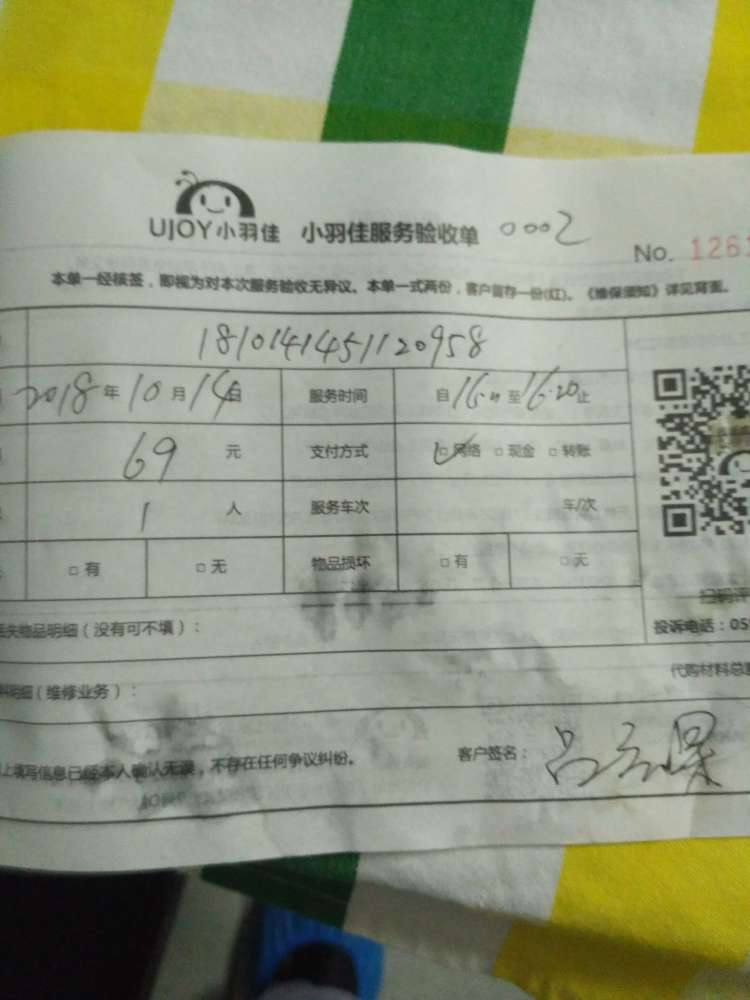 UJOY小羽佳 小羽佳服务验收单 0002
No. 1261
本单一经核签，即视为对本次服务验收无异议。本单一式两份，客户留存一份(红)。《维保须知》详见背面。
1810141451120958
2018年10月14日 服务时间 自16:00至16:20止
69元 支付方式 ☑网络 □现金 □转账
1人 服务车次 车/次
□有 □无 物品损坏 □有 □无
扫码评
丢失物品明细（没有可不填）： 投诉电话：05
料明细（维修业务）： 代购材料总
上填写信息已经本人确认无误，不存在任何争议纠纷。 客户签名：